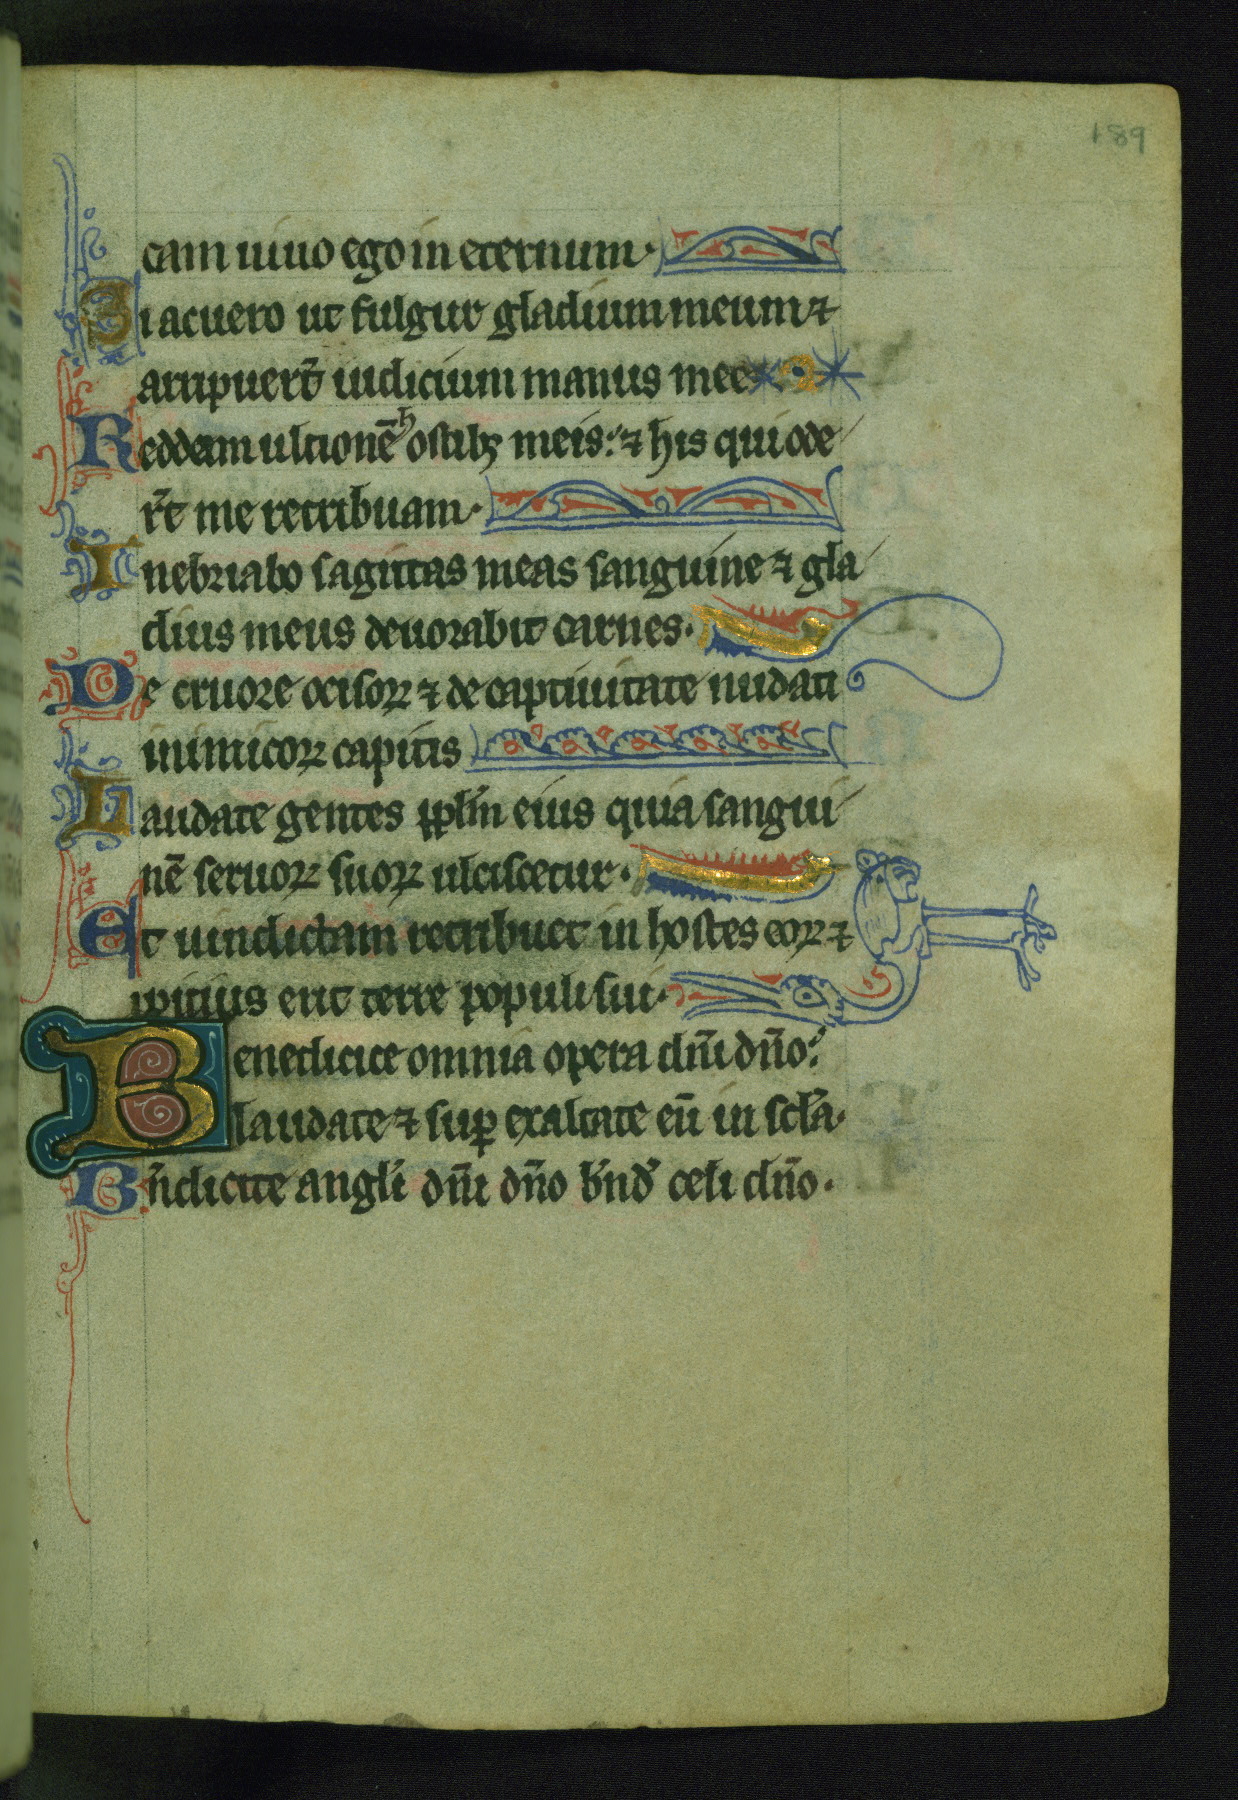 189
cam uiuo ego in eternum·
Si acuero ut fulgur gladium meum ⁊
arripuer̄t iudicium manus mee
Reddam ultionē hostibꝫ meis: ⁊ his qui ode
r̄t me retribuam·
Inebriabo sagittas meas sanguine ⁊ gla
dius meus deuorabit carnes·
De cruore ocisoꝝ ⁊ de captiuitate nudati
inimicoꝝ capitis
Laudate gentes ppl̄m eius quia sangui
nē seruoꝝ suoꝝ ulciscetur·
Et uindictam retribuet in hostes eoꝝ ⁊
ꝓpitius erit terre populi sui·
Benedicite omnia opera dn̄i dn̄o:
laudate ⁊ suꝑ exaltate eū in scl̄a·
Bn̄dicite angl̄i dn̄i dn̄o bn̄d̄ celi dn̄o·